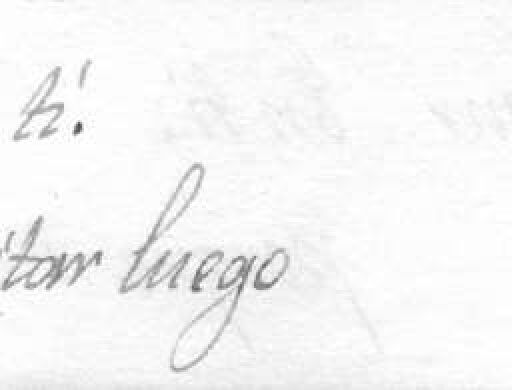 ti.
itar luego